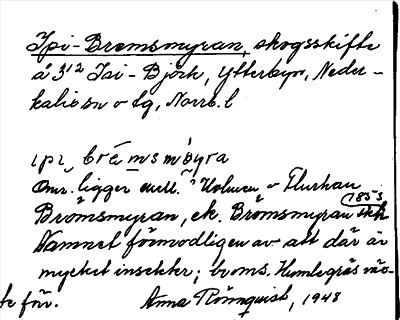 Ipi-Bromsmyran, skogsskifte
å 3¹² Isi-Björk, Ytterbyn, Neder-
kalix sn o tg, Norrb. l
ipi, brå̀msmøyra
Omr. ligger mell. Holmen o Flurhau
Bromsmyran, ek. Brömsmyran 1853 skk
Namnet förmodligen av att där är
mycket insekter; broms. Humlegräs väx-
te för.
Anna Rönnquist, 1948